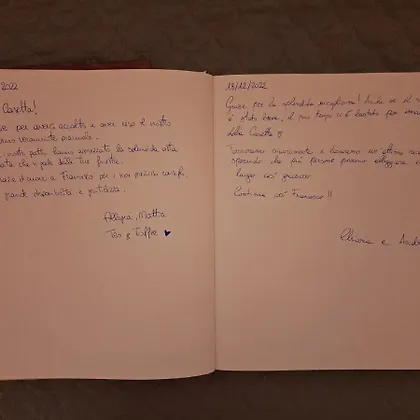 2022
Casetta!
per averci accolto e aver reso il nostro
veramente
nostri patti hanno apprezzato la splendida vista
che si gode dalle Tue finestre.
Francesco per i suoi preziosi consigli,
grande disponibilità e gentilezza.
Allegra, Mattia
Teo e Toffee ♥
18/12/2022
Grazie per la splendida accoglienza! Anche se il
è stato breve, il poco tempo ci è bastato per
della Casetta
Torneremo sicuramente e lasceremo un'ottima
sperando che più persone possano alloggiare
luogo così
Continua così Francesco!!
e